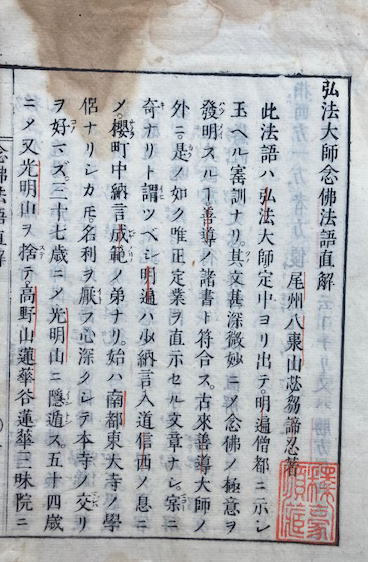 弘法大師念佛法語直解
尾州八事山苾芻諦忍著
此法語ハ弘法大師定中ヨリ出テ。明遍僧都ニ示シ
玉ヘル審訓ナリ。其文甚深微妙ニシテ念佛ノ極意ヲ
發明スルヿ善導ノ諸書ト符合ス。古來善導大師ノ
外ニ。是ノ如ク唯正定業ヲ直示セル文章ナシ。寔ニ
奇ナリト謂ツベシ。明遍ハ少納言入道信西ノ息ニ
メ。櫻町中納言成範ノ弟ナリ。始ハ南都東大寺ノ學
侶ナリシカ𪜈。名利ヲ厭フ心深クシテ本寺ノ交リ
ヲ好マズ。三十七歳ニメ光明山ニ隱遁ス。五十四歳
ニメ又光明山ヲ捨テ高野山蓮華谷蓮華三昧院ニ
念佛法語直解